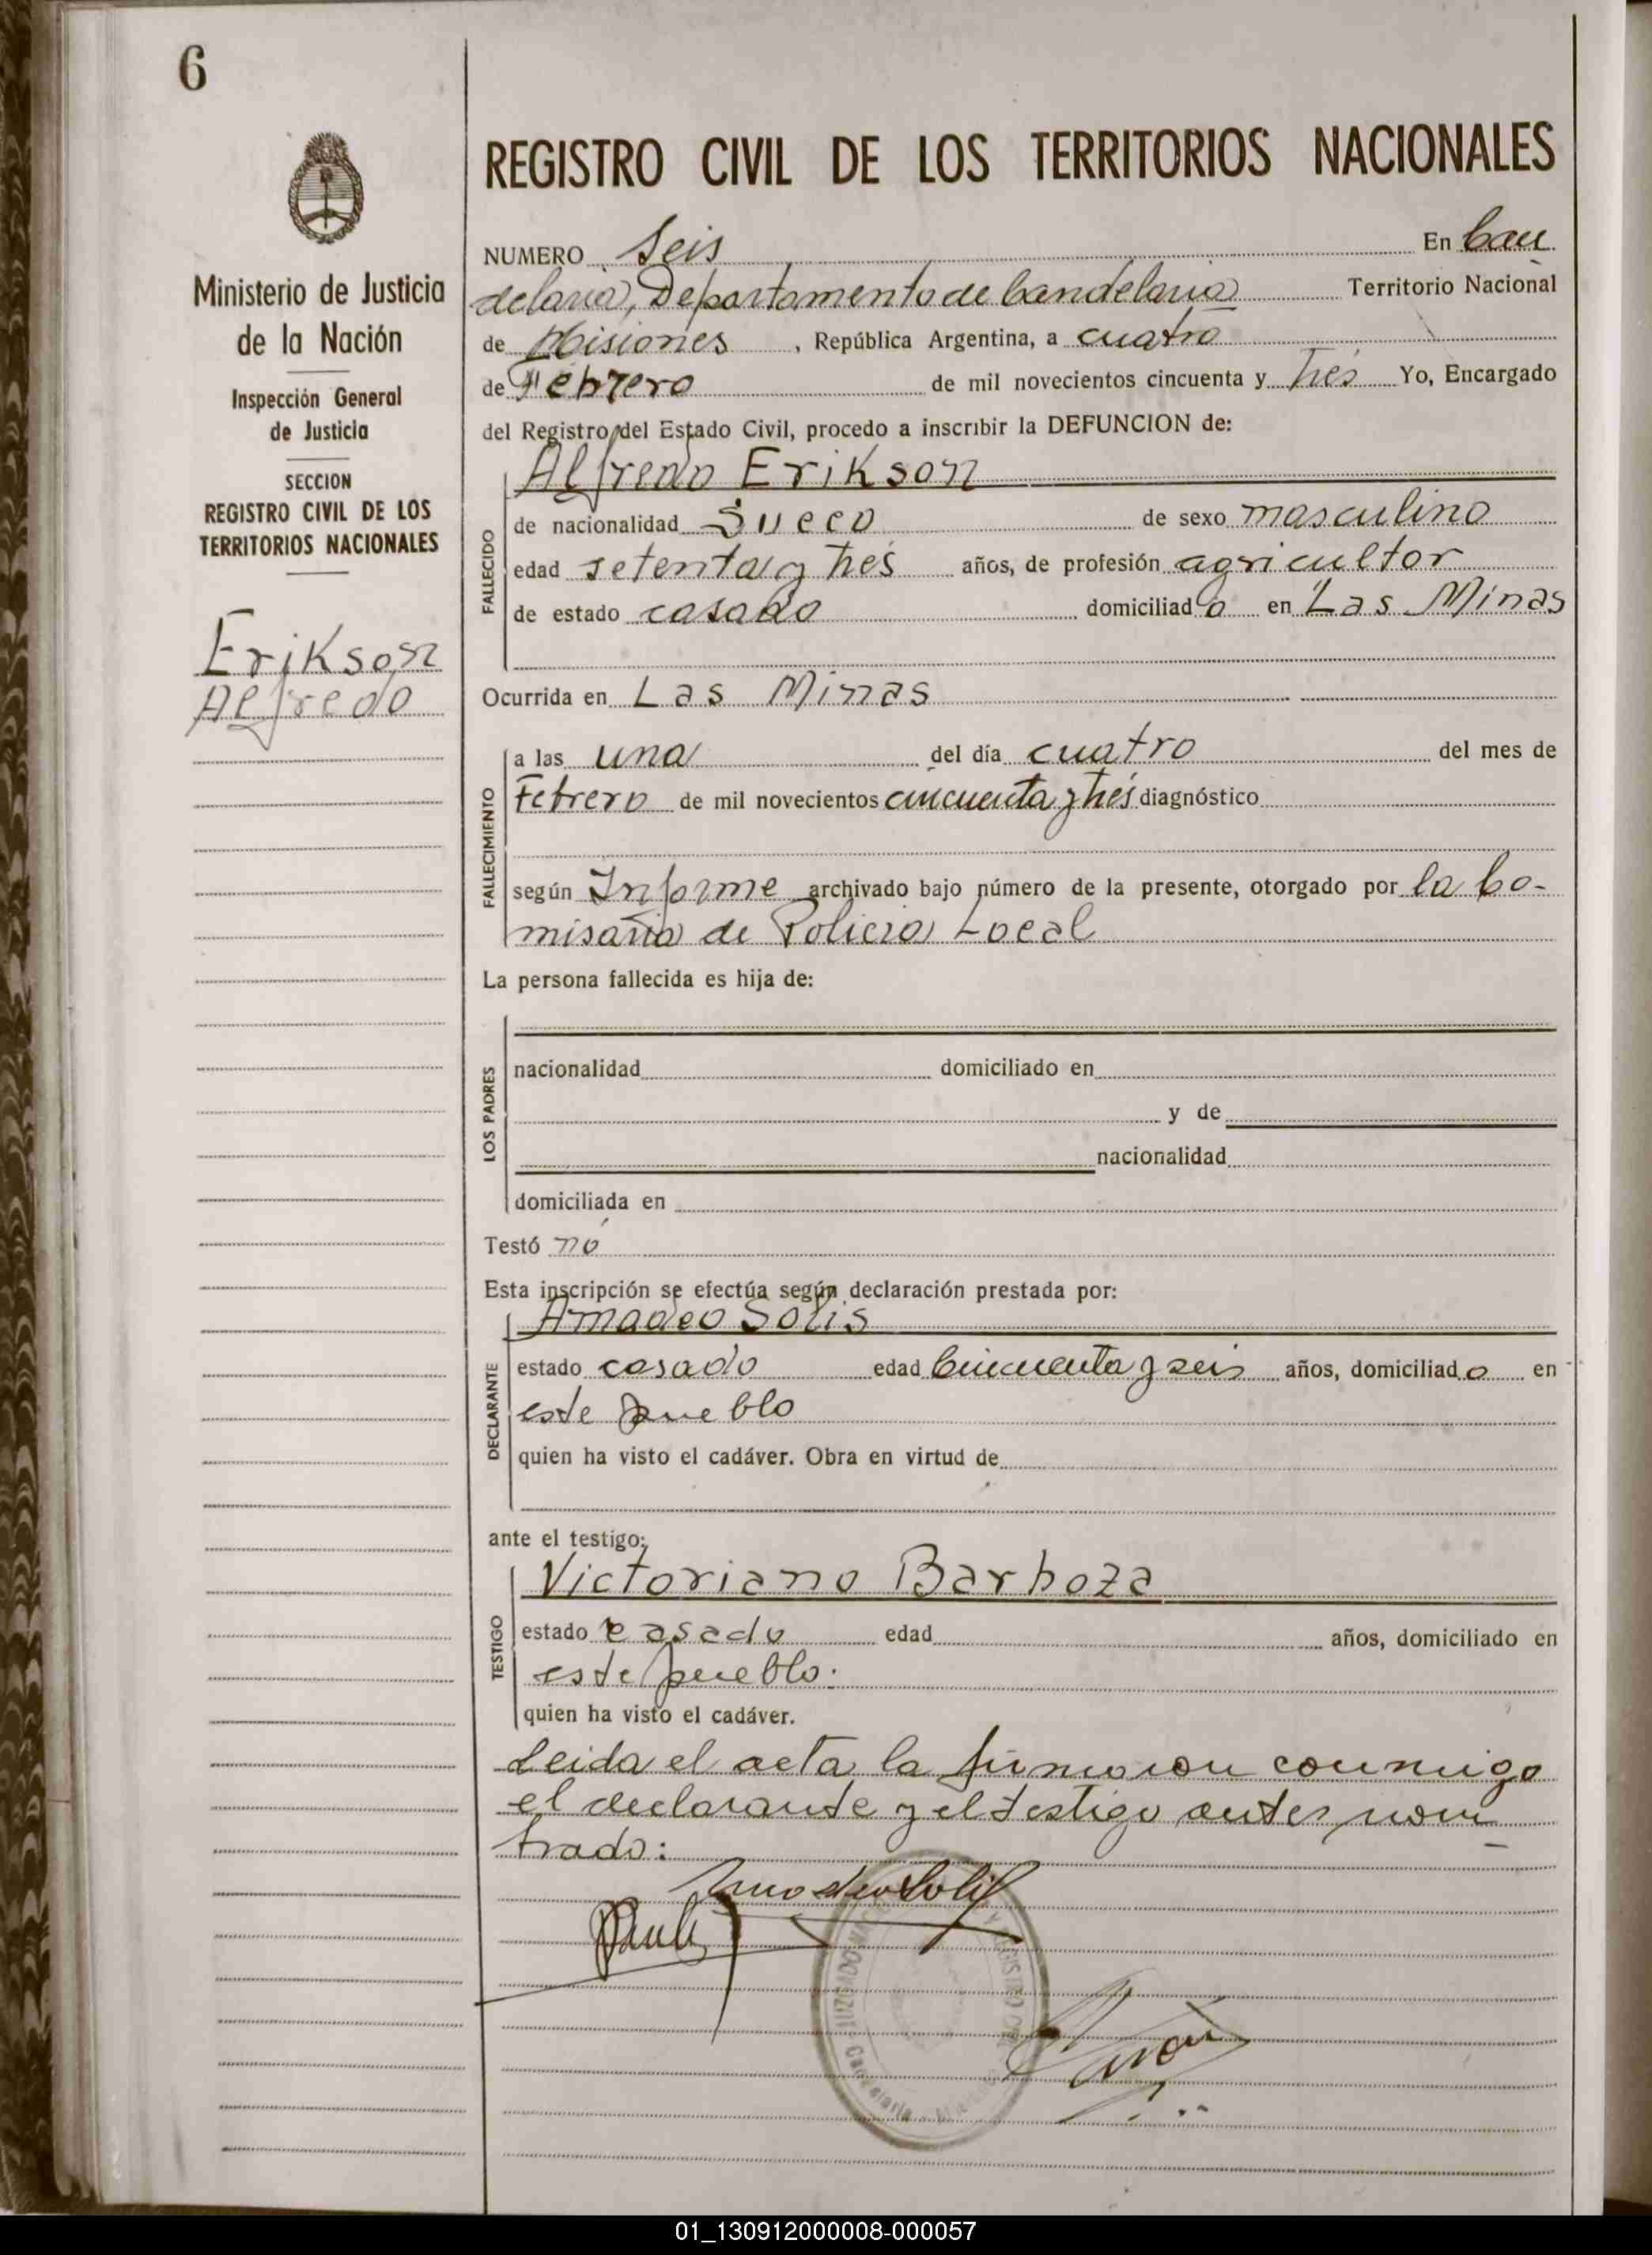 6
Ministerio de Justicia
de la Nación
Inspección General
de Justicia
SECCION
REGISTRO CIVIL DE LOS
TERRITORIOS NACIONALES
Erikson
Alfredo
REGISTRO CIVIL DE LOS TERRITORIOS NACIONALES
NUMERO Seis En Can
delaria, Departamento de Candelaria Territorio Nacional
de Misiones, República Argentina, a cuatro
de Febrero de mil novecientos cincuenta y tres Yo, Encargado
del Registro del Estado Civil, procedo a inscribir la DEFUNCION de:
Alfredo Erikson
FALLECIDO
de nacionalidad Sueco de sexo masculino
edad setenta y tres años, de profesión agricultor
de estado casado domiciliado en Las Minas
Ocurrida en Las Minas
FALLECIMIENTO
a las una del día cuatro del mes de
Febrero de mil novecientos cincuenta y tres diagnóstico
según Informe archivado bajo número de la presente, otorgado por la Co-
misaria de Policia Local
La persona fallecida es hija de:
LOS PADRES
nacionalidad domiciliado en
y de
nacionalidad
domiciliada en
Testó no
Esta inscripción se efectúa según declaración prestada por:
Amadeo Solis
DECLARANTE
estado casado edad Cincuenta y seis años, domiciliado en
este pueblo
quien ha visto el cadáver. Obra en virtud de
ante el testigo:
Victoriano Barboza
TESTIGO
estado casado edad años, domiciliado en
este pueblo.
quien ha visto el cadáver.
Leida el acta la firmaron conmigo
el declarante y el testigo antes nom
brado:
Amadeo Solis
01_130912000008-000057